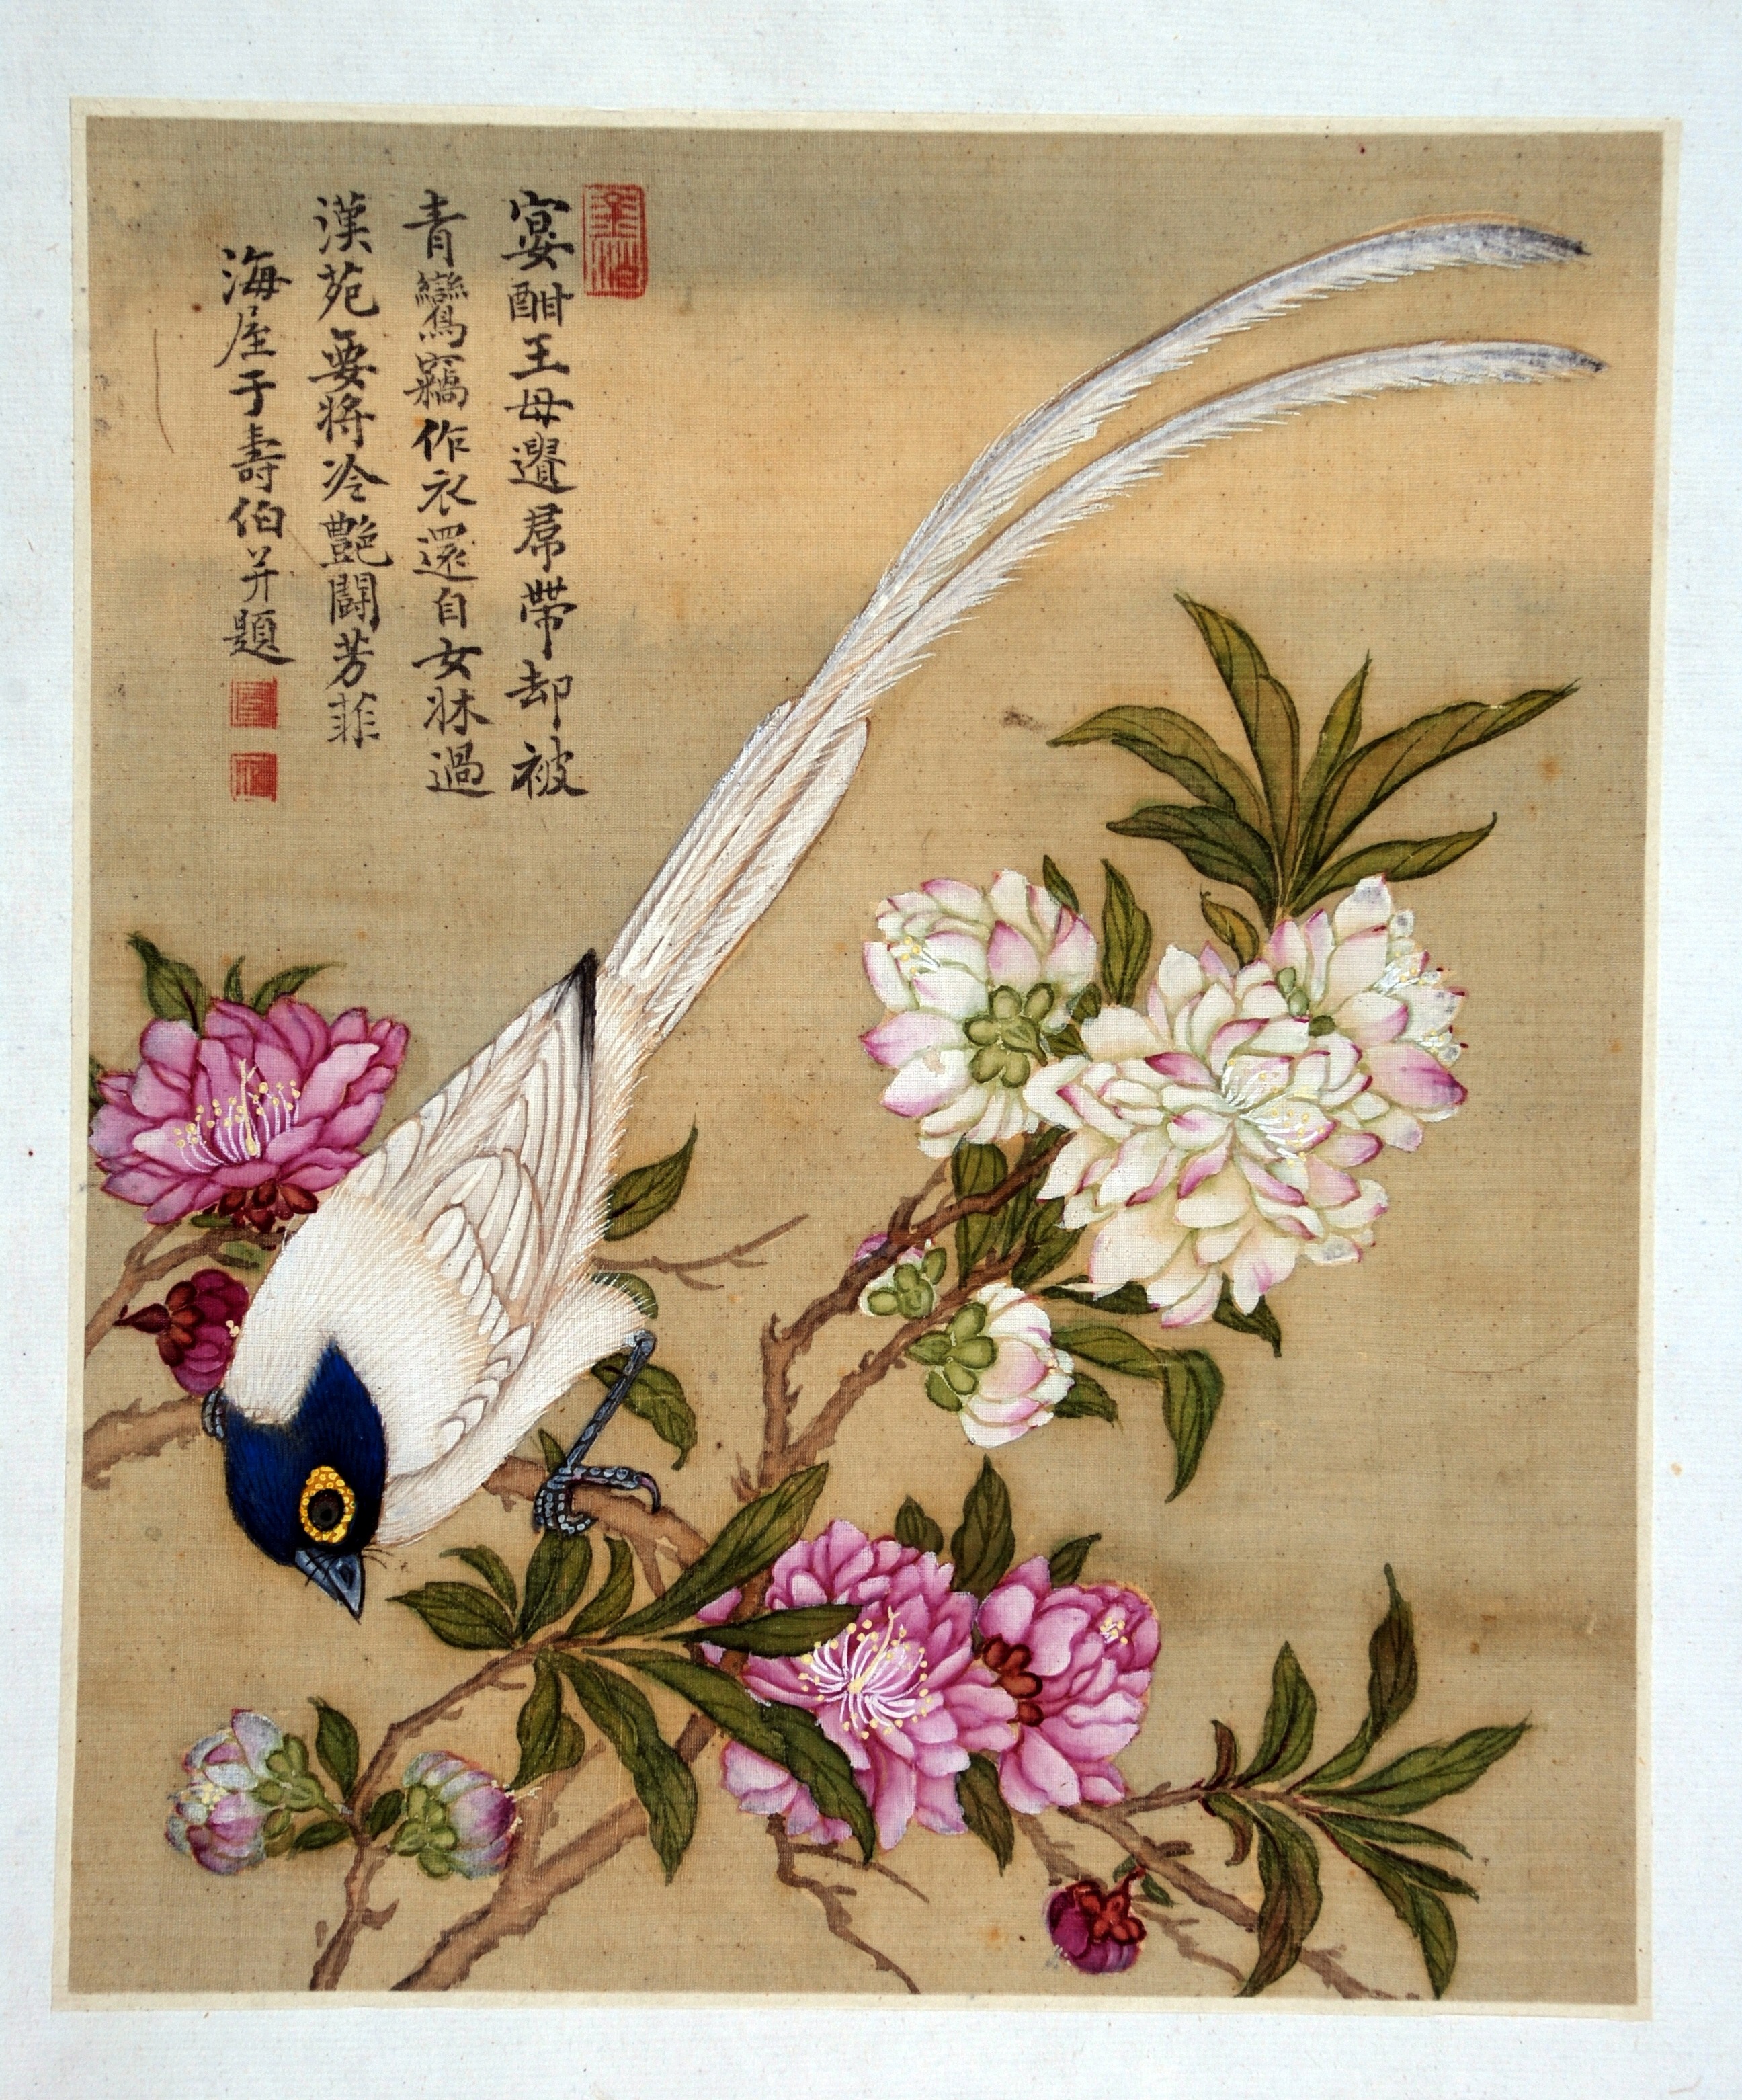 宴酣王母邉羣帶却被
青鸞竊作衣還自女牀過
漢苑要將冷艷鬪芳菲
海屋于壽伯并題